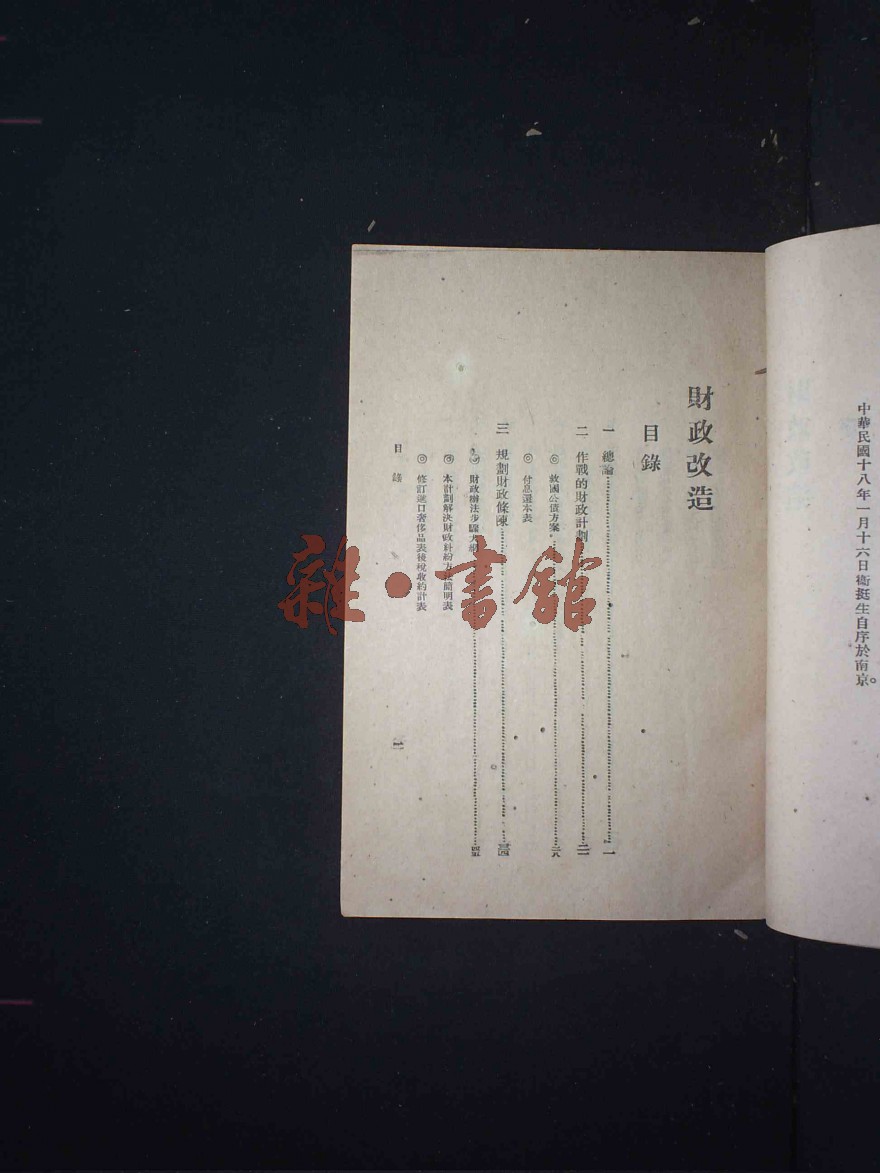 中華民國十八年一月十六日衞挺生自序於南京。
財政改造
目錄
一 總論 一
二 作戰的財政計劃
◎ 救國公債方案 二八
◎ 付息還本表
三 規劃財政條陳 三四
◎ 財政辦法步驟大綱
◎ 本計劃解決財政糾紛方法簡明表
◎ 修訂進口奢侈品表後稅收約計表
目錄
一
雜·書館